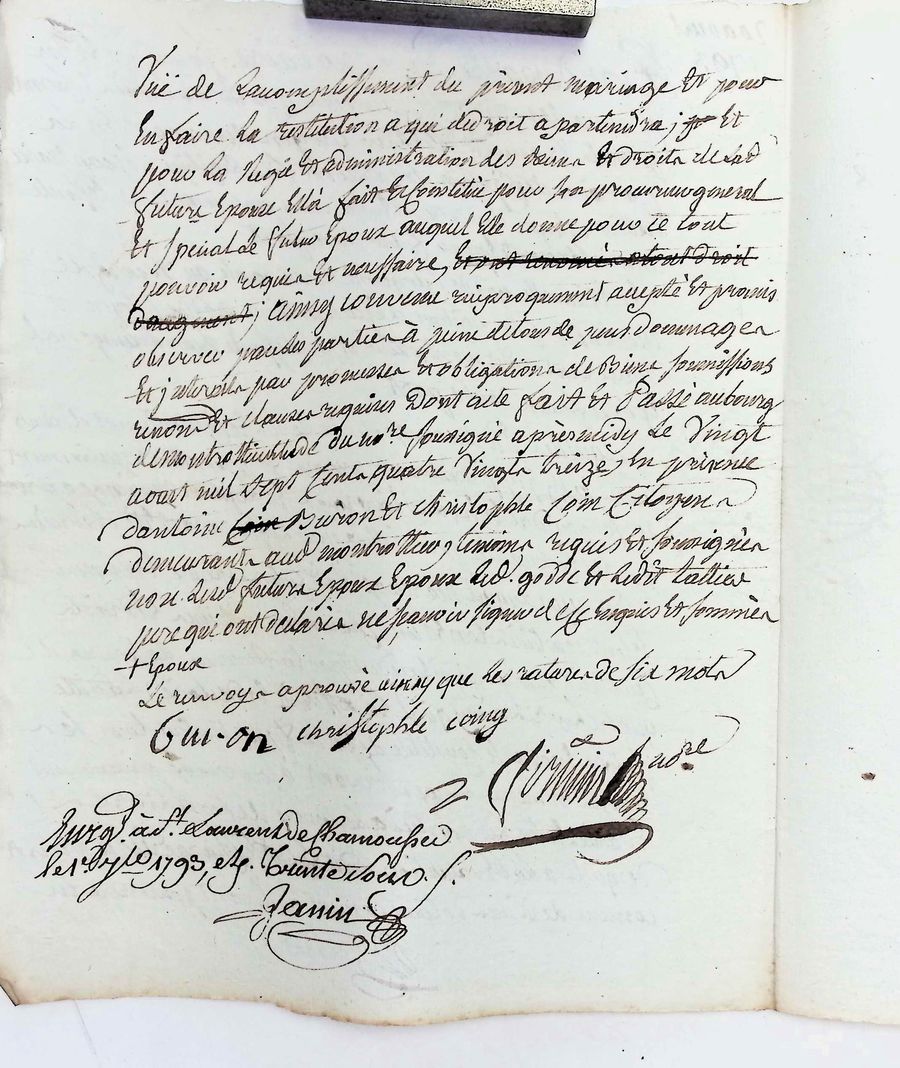 Vuë de Lacomplissement du présent mariage Et pour
En faire La restitution a qui de droit apartiendra; Et
pour La Regie Et administration des biens Et droits de lad
future Epouse Ella fait Et Constitüe pour son procureur general
Et special Le futur Epoux auquel Elle donne pour ce tout
pouvoir requis Et nécessaire, Et ont renoncé atout droit
daugment; ainsy convenu réciproquement accepté Et promis
observer par les parties à peine de tous depens dommages
Et jnterets par promesses Et obligations de Biens soumissions
renonõns Et clauses requises Dont acte fait Et Passé au bourg
de montrottier Etude du nore. soussigné après midy Le Vingt
aoust mil Sept Cents quatre Vingts treize, En présence
dantoine Guron Et christophle Coin Citoyens
demeurants aud. montrottier, témoins requis Et soussignés
non Lesd. futurs Epoux Led. godde Et Ledit
pere qui ont déclarés ne sçavoir signer de ce Enquis Et sommés
+ Epoux
Le renvoy aprouvé ainsy que Les ratures de six mots
Guron christophle coing
nore
Enreg. à St. Laurent de Chamousset
le 1er. 7bre 1793, Trente sous.
Janin